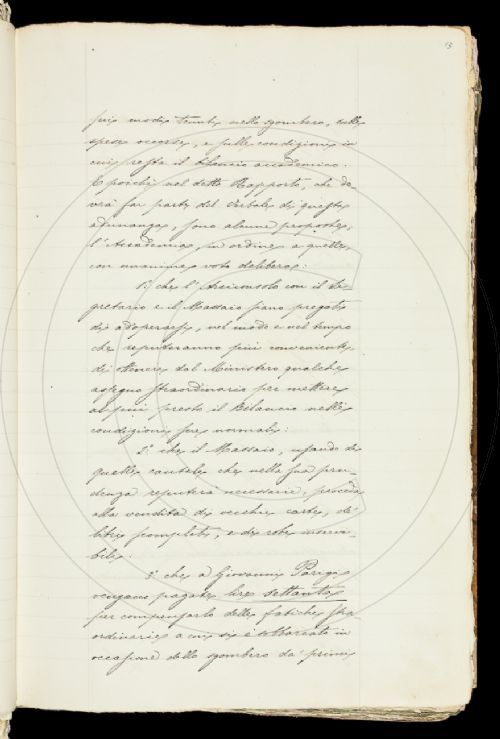 13
sui modi tenuti nello sgombero, sulle
spese occorse, e sulle condizioni in
cui resta il bilancio accademico.
E poichè nel detto Rapporto, che do
vrà far parte del Verbale di questa
adunanza, sono alcune proposte;
l'Accademia, in ordine a quelle,
con unanime voto delibera:
1.° che l'Arciconsolo con il Se
gretario e il Massaio siano pregati
di adoperarsi, nel modo e nel tempo
che reputeranno più conveniente,
di ottenere dal Ministero qualche
assegno straordinario per mettere
al più presto il Bilancio nelle
condizioni sue normali:
2.° che il Massaio, usando di
quelle cautele che nella sua pru-
denza reputerà necessarie, proceda
alla vendita di vecchie carte, di
libri scompleti, e di robe inservi-
bili:
3.° che a Giovanni
vengano pagate lire settanta
per compensarlo delle fatiche stra
ordinarie a cui si è sobbarcato in
occasione dello sgombero da' primi